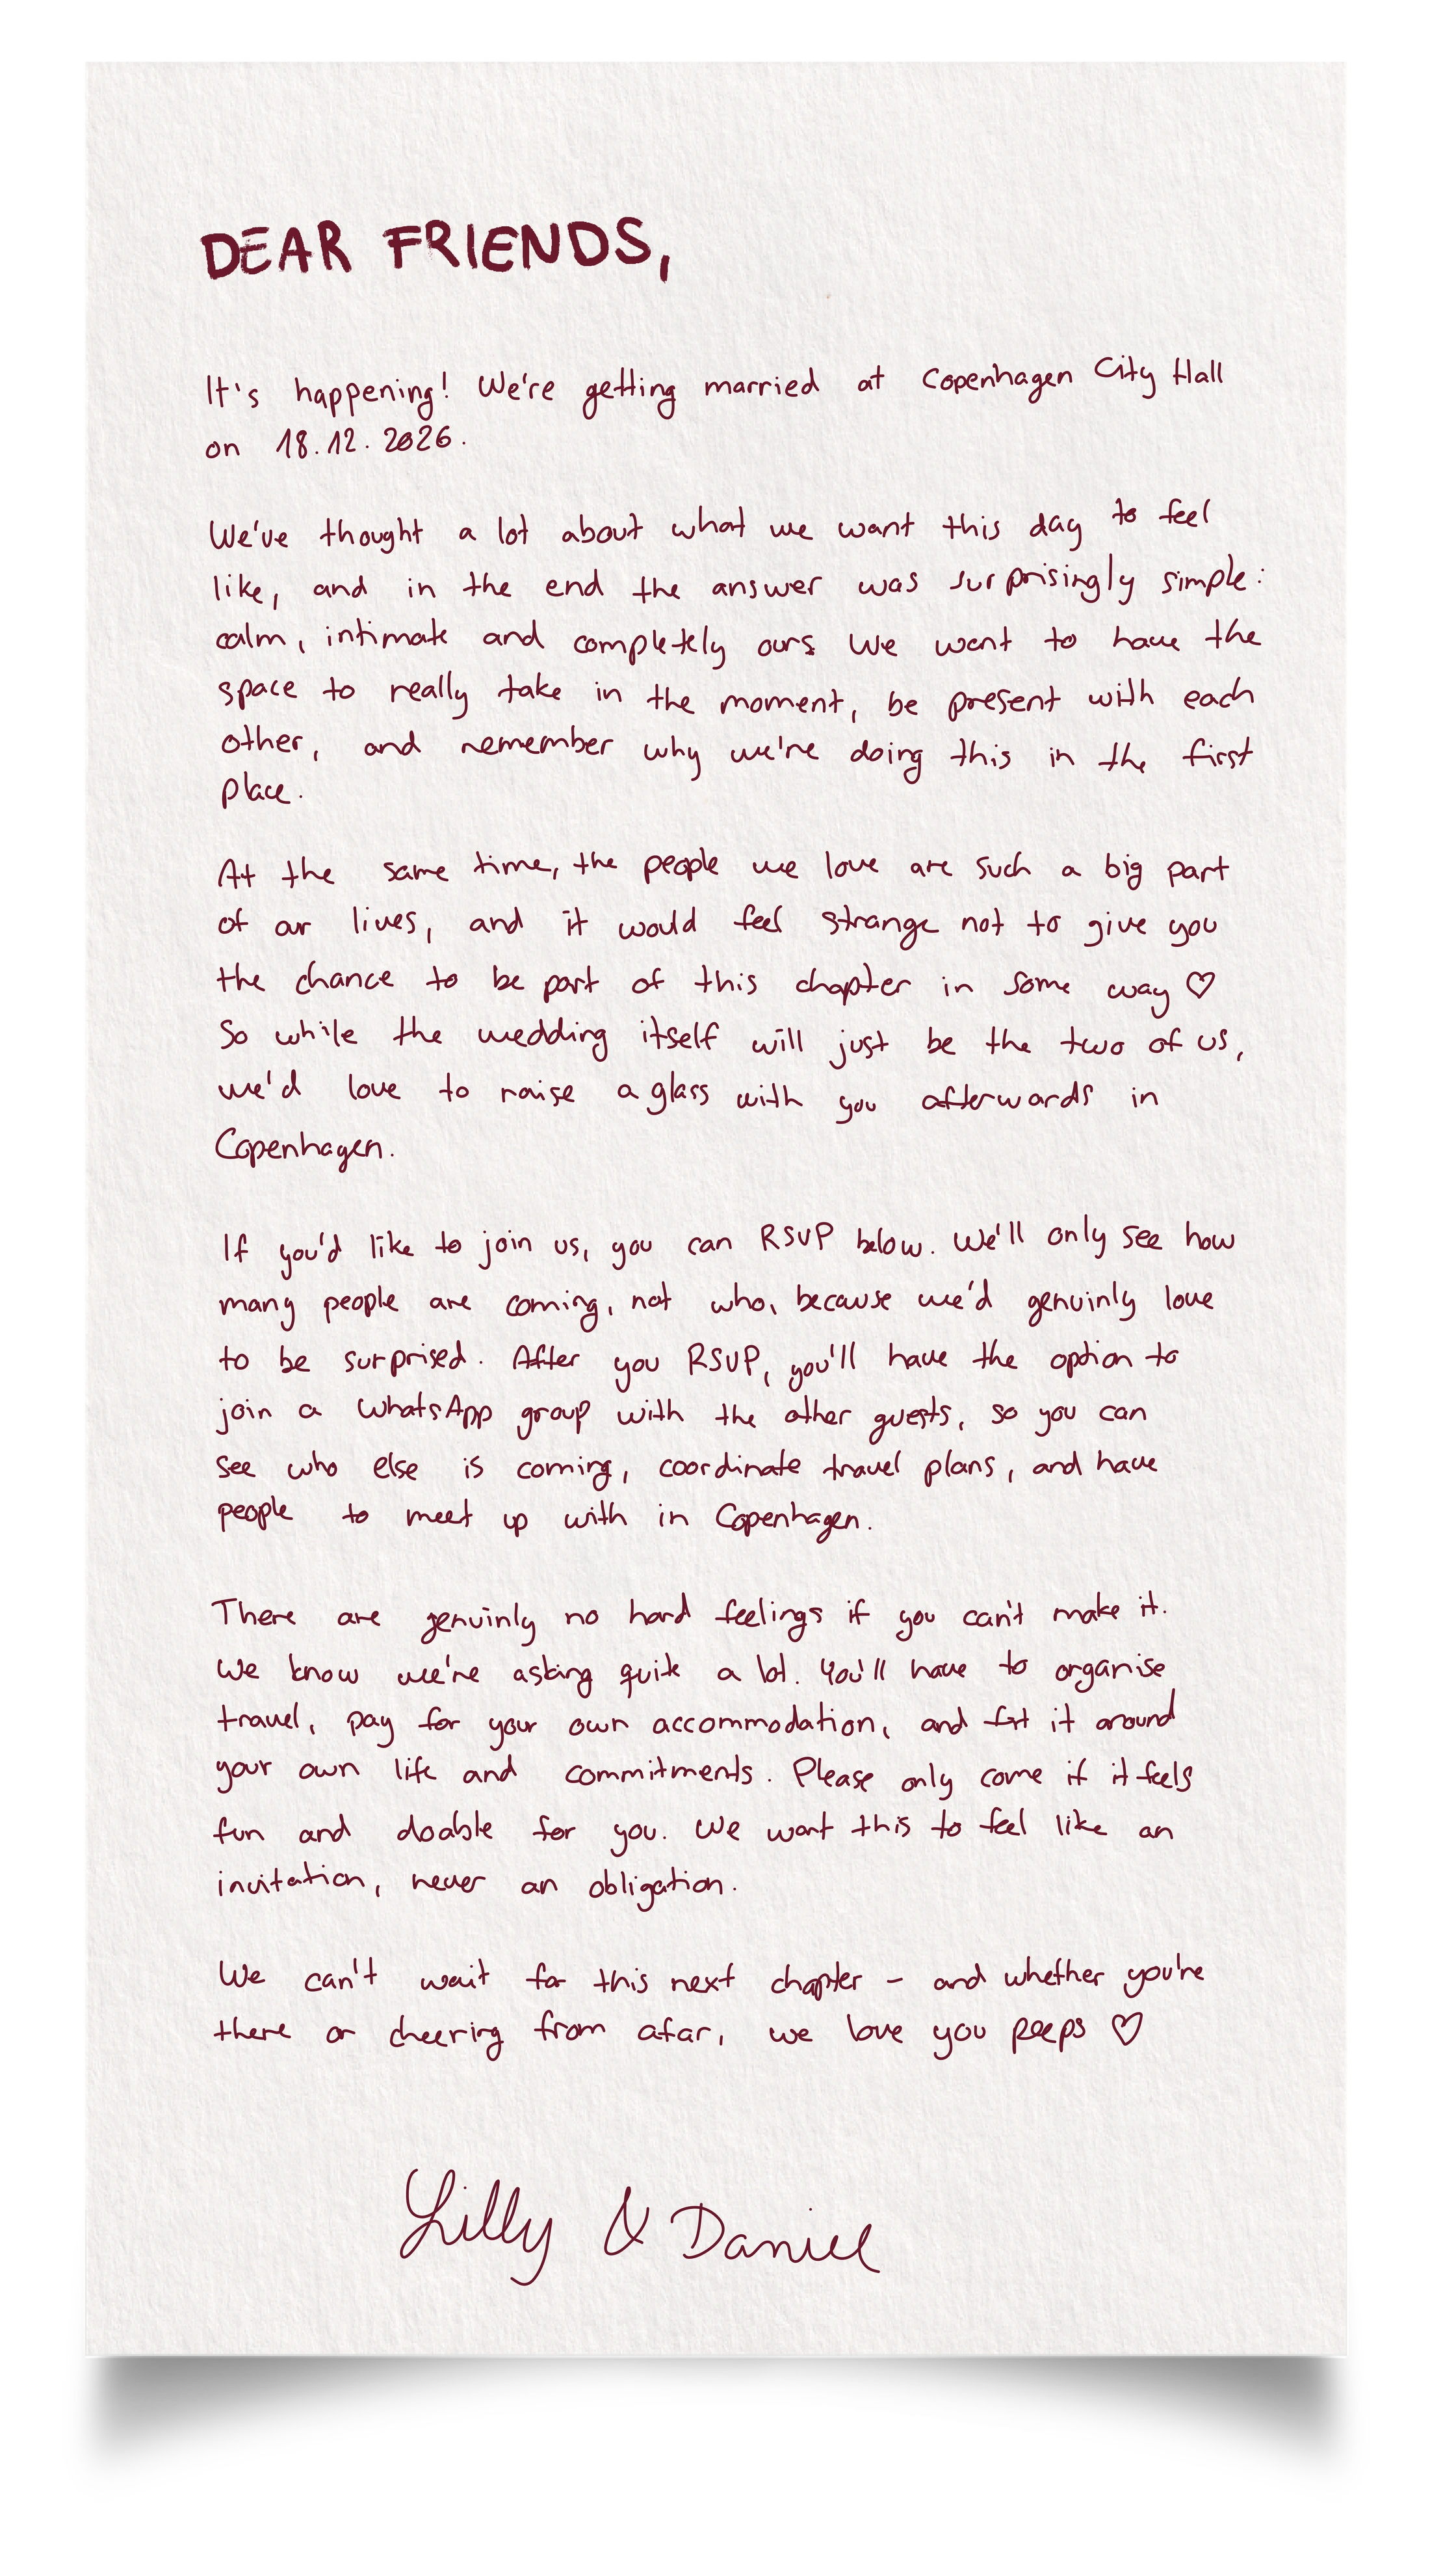 DEAR FRIENDS,
It's happening! We're getting married at Copenhagen City Hall
on 18.12.2026.
We've thought a lot about what we want this day to feel
like, and in the end the answer was surprisingly simple:
calm, intimate and completely ours. We want to have the
space to really take in the moment, be present with each
other, and remember why we're doing this in the first
place.
At the same time, the people we love are such a big part
of our lives, and it would feel strange not to give you
the chance to be part of this chapter in some way ♡
So while the wedding itself will just be the two of us,
we'd love to raise a glass with you afterwards in
Copenhagen.
If you'd like to join us, you can RSVP below. We'll only see how
many people are coming, not who, because we'd genuinly love
to be surprised. After you RSVP, you'll have the option to
join a WhatsApp group with the other guests, so you can
see who else is coming, coordinate travel plans, and have
people to meet up with in Copenhagen.
There are genuinly no hard feelings if you can't make it.
We know we're asking quite a lot. You'll have to organise
travel, pay for your own accommodation, and fit it around
your own life and commitments. Please only come if it feels
fun and doable for you. We want this to feel like an
invitation, never an obligation.
We can't wait for this next chapter – and whether you're
there or cheering from afar, we love you peeps ♡
Lilly & Daniel